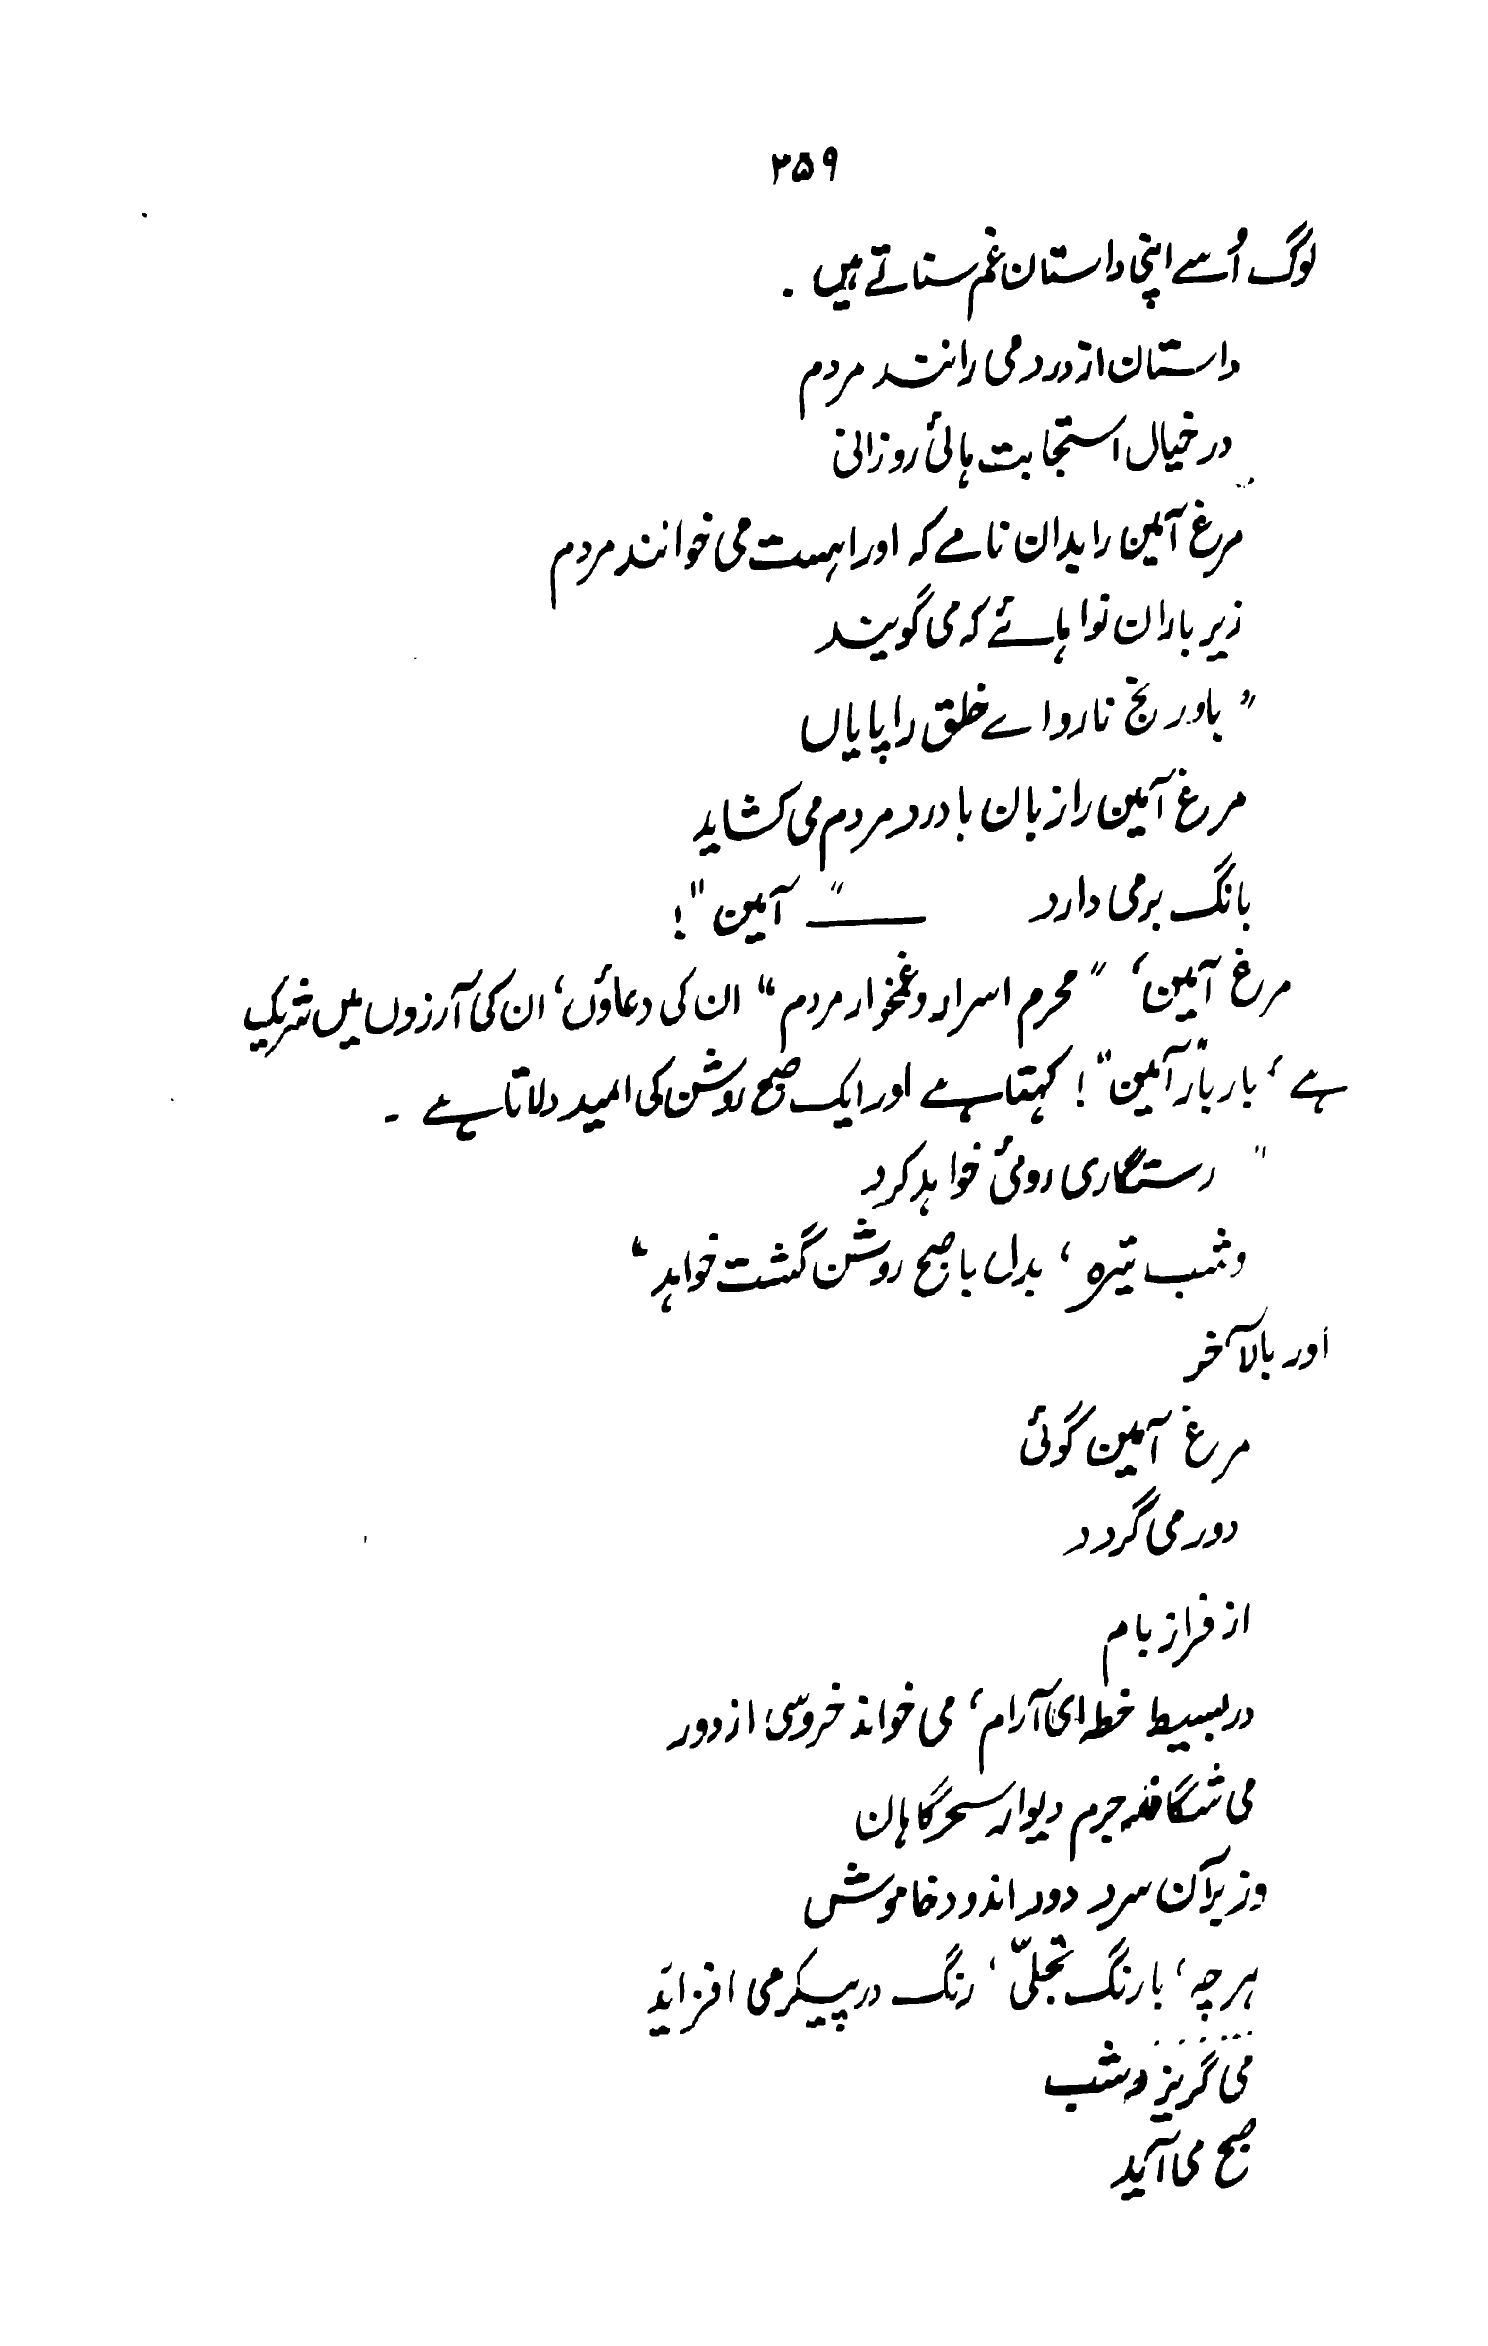 ۲۵۹
لوگ اُسے اپنی داستان غم سناتے ہیں۔
داستان از درد می رانند مردم
در خیال استجابت ہائی روزانی
مرغ آمین را بدان نامے کہ اورا ہست می خوانند مردم
زیر باران نوا ہائے کہ می گویند
"باد رنج نارواے خلق را پایاں
مرغ آمین را زبان با درد مردم می کشاید
بانگ برمی دارد ــــــ "آمین"!
مرغ آمین، "محرم اسرار و غمخوار مردم" ان کی دعاؤں، ان کی آرزوں میں شریک
ہے، بار بار "آمین"! کہتا ہے اور ایک صبح روشن کی امید دلاتا ہے۔
"رستگاری روئی خواہد کرد
و شب تیرہ، بدل با صبح روشن گشت خواہد"
اور بالآخر
مرغ آمین گوئی
دور می گردد
از فراز بام
در بسیط خطہ ای آرام، می خواند خروسی از دور
می شگافد جرم دیوار سحرگاہان
وز برآن سرد دود اندود خاموش
ہرچہ، با رنگ تجلّی، رنگ در پیکر می افزاید
.......
می گریزد شب
صبح می آید